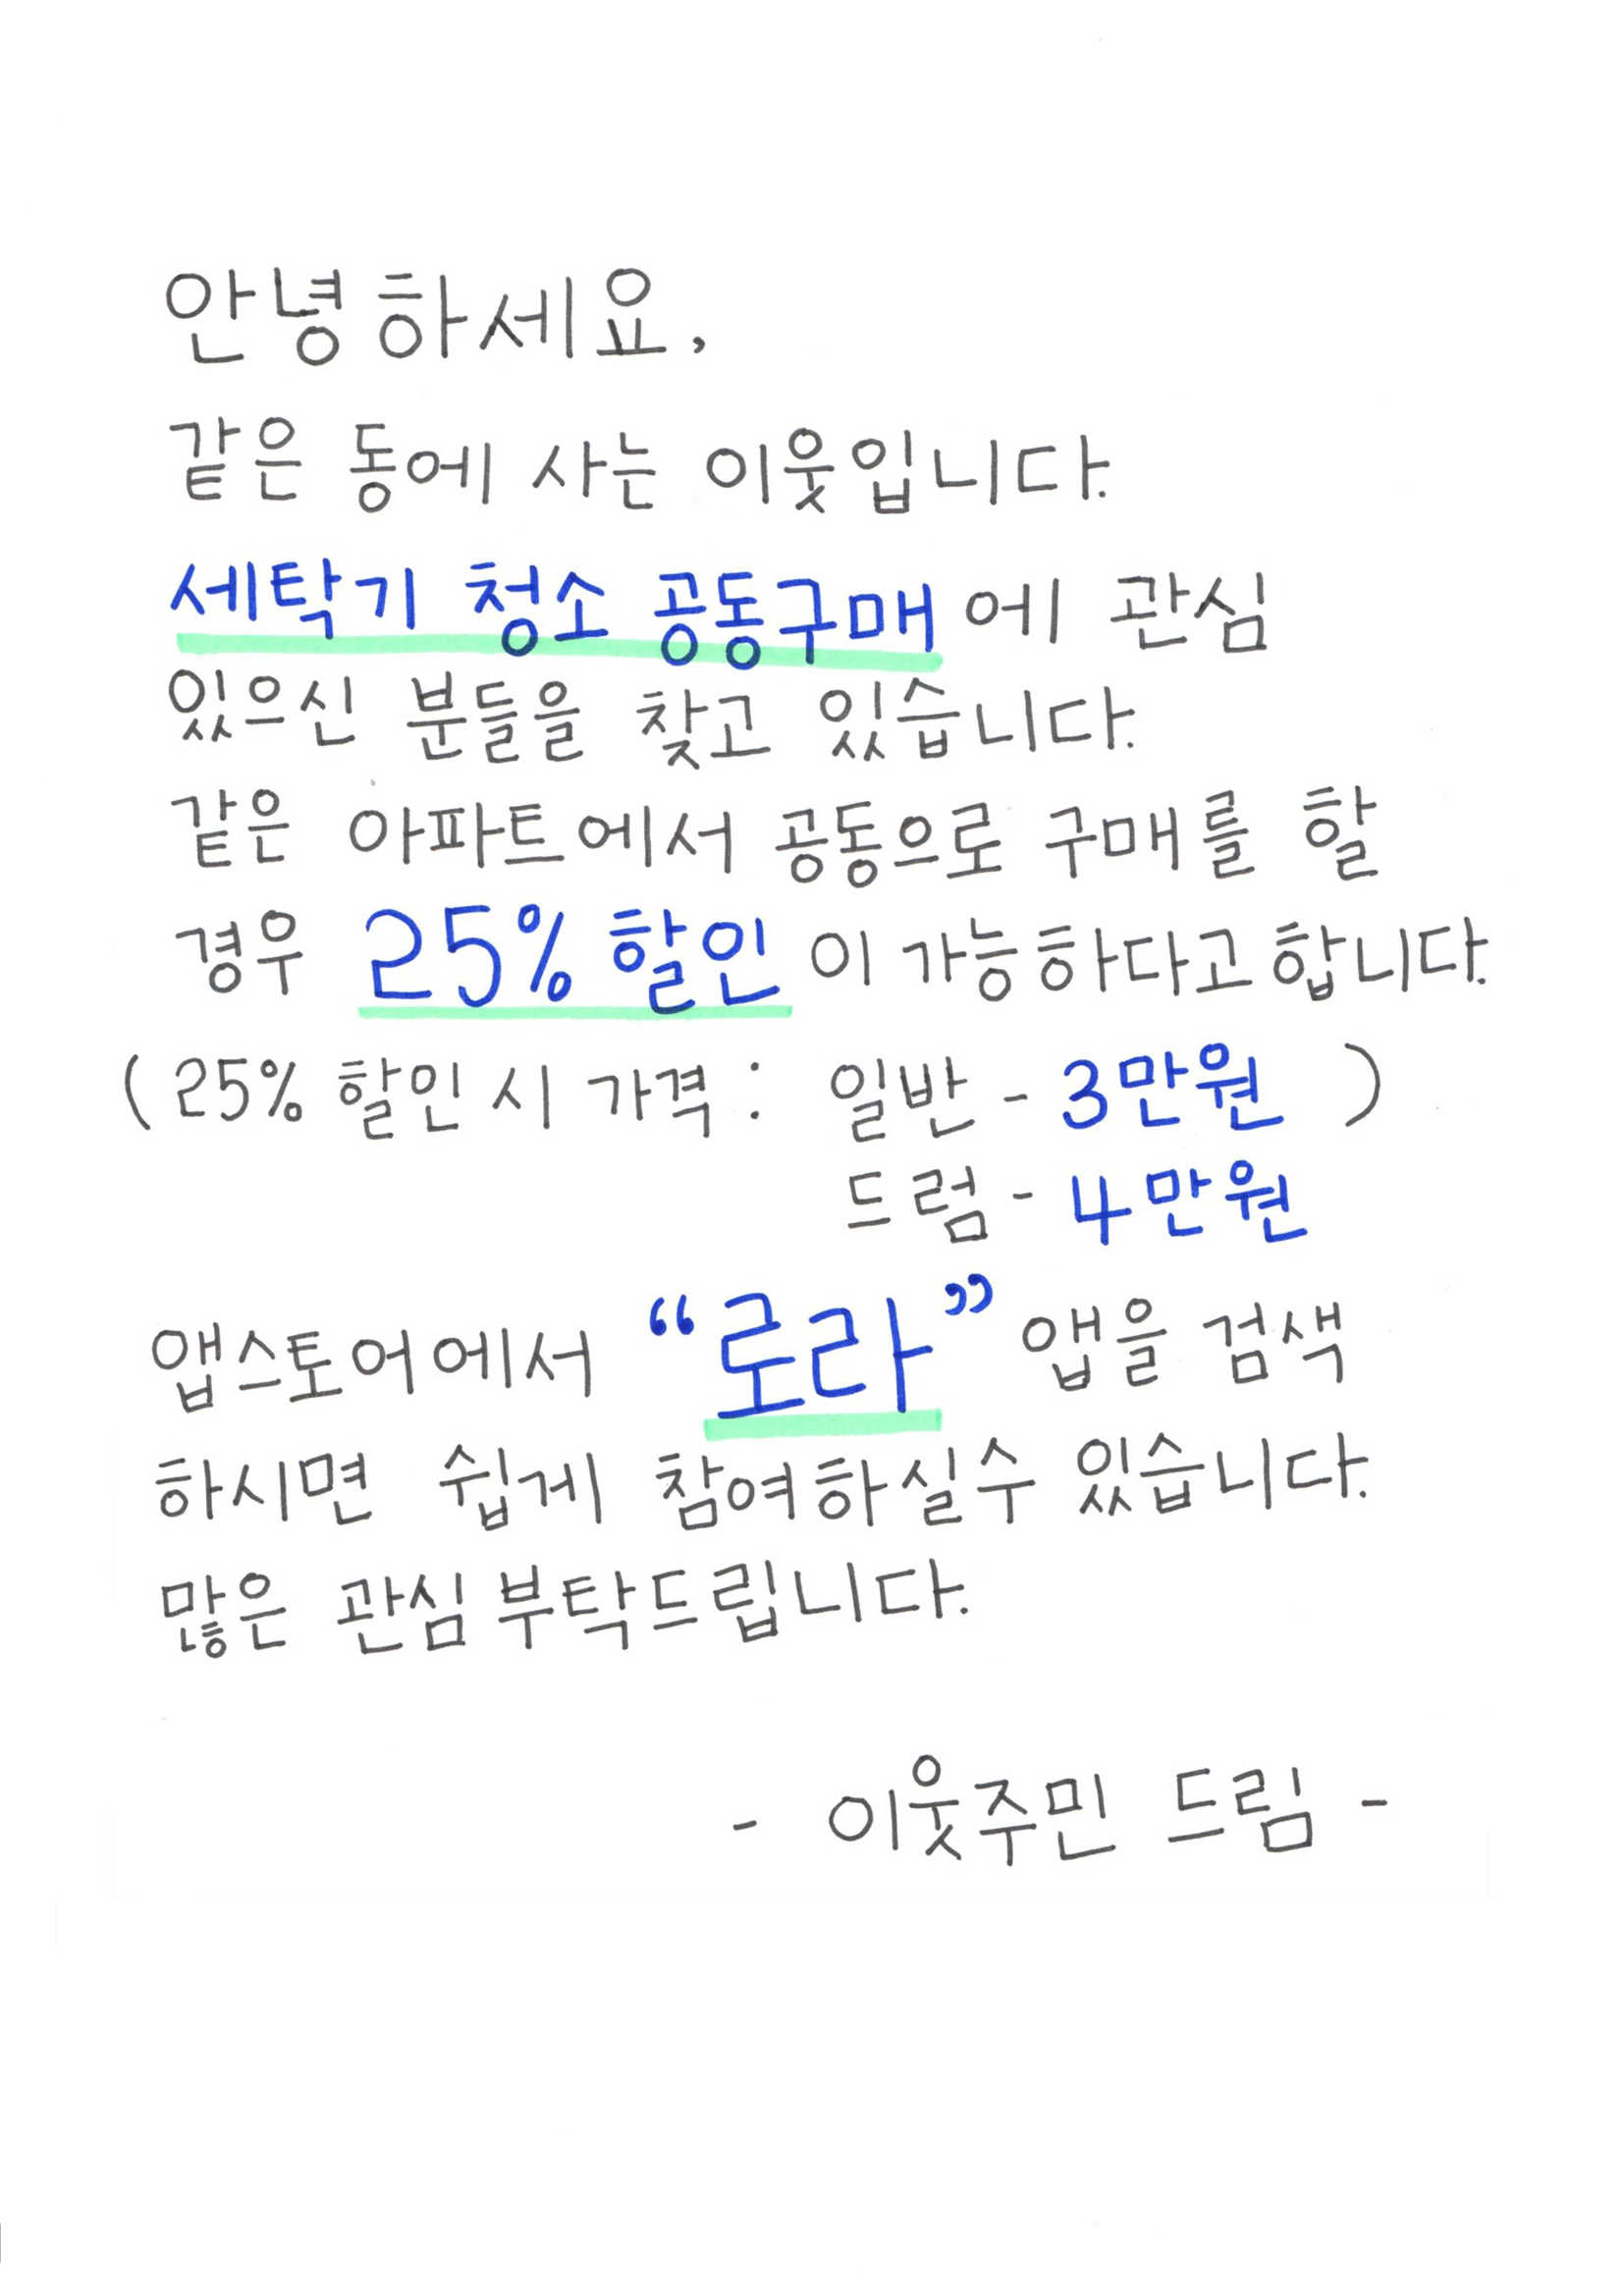 안녕하세요,
같은 동에 사는 이웃입니다.
세탁기 청소 공동구매에 관심
있으신 분들을 찾고 있습니다.
같은 아파트에서 공동으로 구매를 할
경우 25% 할인이 가능하다고 합니다.
(25% 할인 시 가격 : 일반 - 3만원 )
드럼 - 4만원
앱스토어에서 “로라” 앱을 검색
하시면 쉽게 참여하실수 있습니다.
많은 관심 부탁드립니다.
- 이웃주민 드림 -